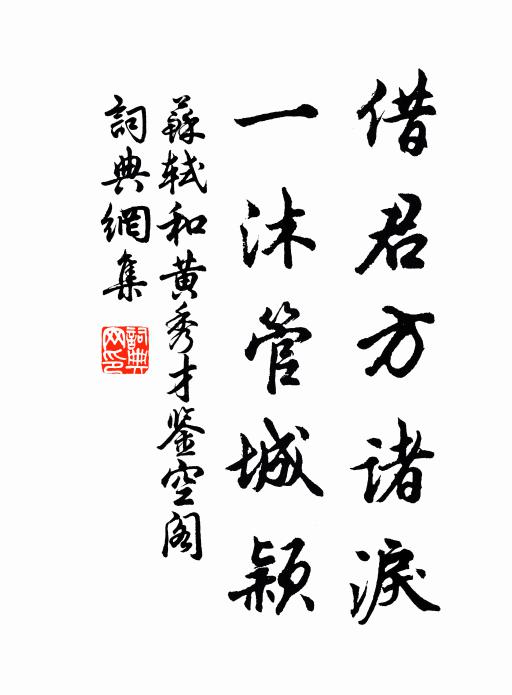 借君方諸淚
一沐管城穎
蘇軾和黃秀才鉴空阁
詞典網集
詞典
网印